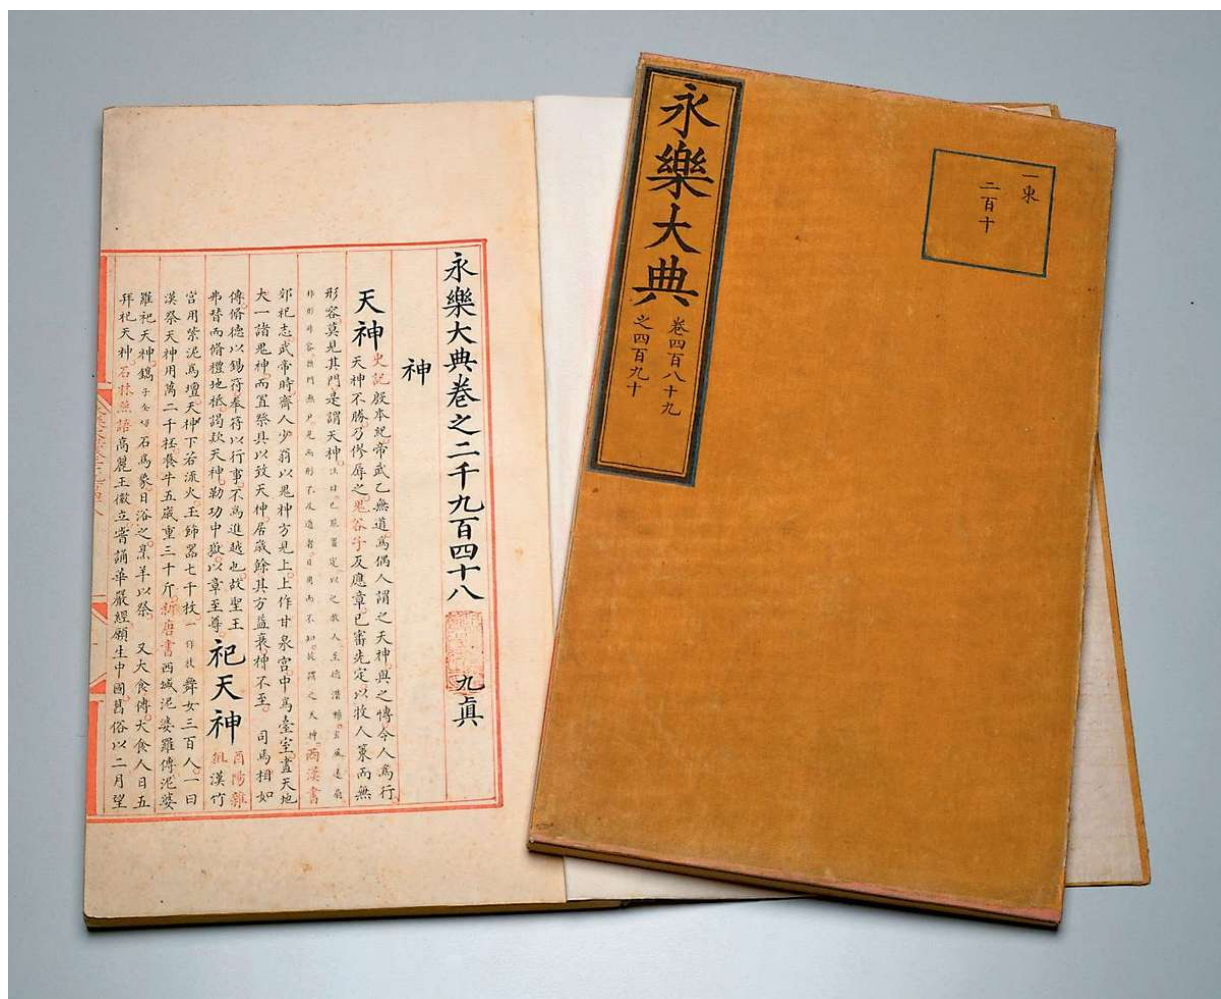 永樂大典
卷四百八十九
之四百九十
一東
二百十
永樂大典卷之二千九百四十八 九眞
神
天神
史記殷本紀帝武乙無道爲偶人謂之天神與之博令人爲行
天神不勝乃僇辱之鬼谷子反應章已審先定以牧人策而無
形容莫見其門是謂天神
西漢書
郊祀志武帝時齊人少翁以鬼神方見上上作甘泉宮中爲臺室畫天地
大一諸鬼神而置祭具以致天神居歲餘其方益衰神不至 司馬相如
傳脩德以錫符奉符以行事不爲進越也故聖王
弗替而脩禮地祗謁欵天神勒功中嶽以章至尊
祀天神
酉陽雜
俎漢竹
宮用紫泥爲壇天神下若流火玉飾器七千枚一作枝舞女三百人一曰
漢祭天神用萬二千杯養牛五歲重三十斤新唐書西域泥婆羅傳泥婆
羅祀天神鐫石爲象日浴之烹羊以祭 又大食傳大食人日五
拜祀天神石林燕語高麗王徽立嘗誦華嚴經願生中國舊俗以二月望